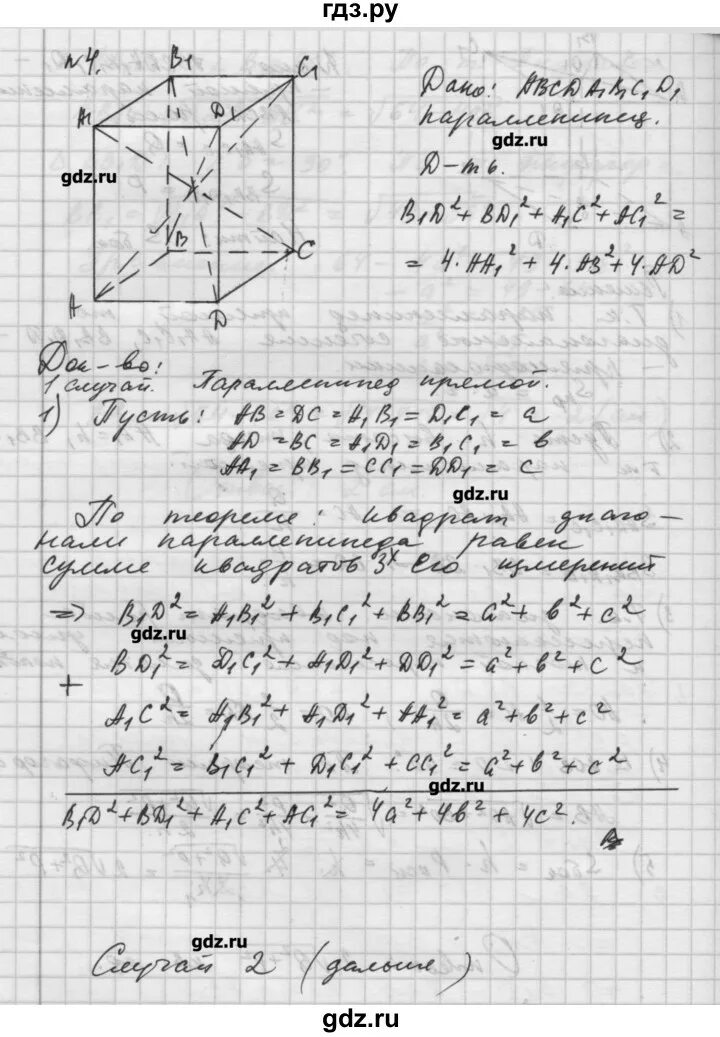 гдз.ру
№4.
B₁ C₁
A₁ D₁
B C
A D
Дано: ABCDA₁B₁C₁D₁
параллепипед.
Д-ть.
B₁D² + BD₁² + A₁C² + AC₁² =
= 4·AA₁² + 4·AB² + 4·AD²
gdz.ru
gdz.ru
gdz.ru
Док-во:
1 случай. Параллепипед прямой.
1) Пусть: AB = DC = A₁B₁ = D₁C₁ = a
AD = BC = A₁D₁ = B₁C₁ = b
AA₁ = BB₁ = CC₁ = DD₁ = c
gdz.ru
По теореме: квадрат диаго-
нали параллепипеда равен
сумме квадратов 3х его измерений
=> B₁D² = A₁B₁² + B₁C₁² + BB₁² = a² + b² + c²
gdz.ru
BD₁² = D₁C₁² + A₁D₁² + DD₁² = a² + b² + c²
+
A₁C² = A₁B₁² + A₁D₁² + AA₁² = a² + b² + c²
AC₁² = B₁C₁² + D₁C₁² + CC₁² = a² + b² + c²
gdz.ru
B₁D² + BD₁² + A₁C² + AC₁² = 4a² + 4b² + 4c².
gdz.ru
Случай 2 (дальше)
gdz.ru
gdz.ru